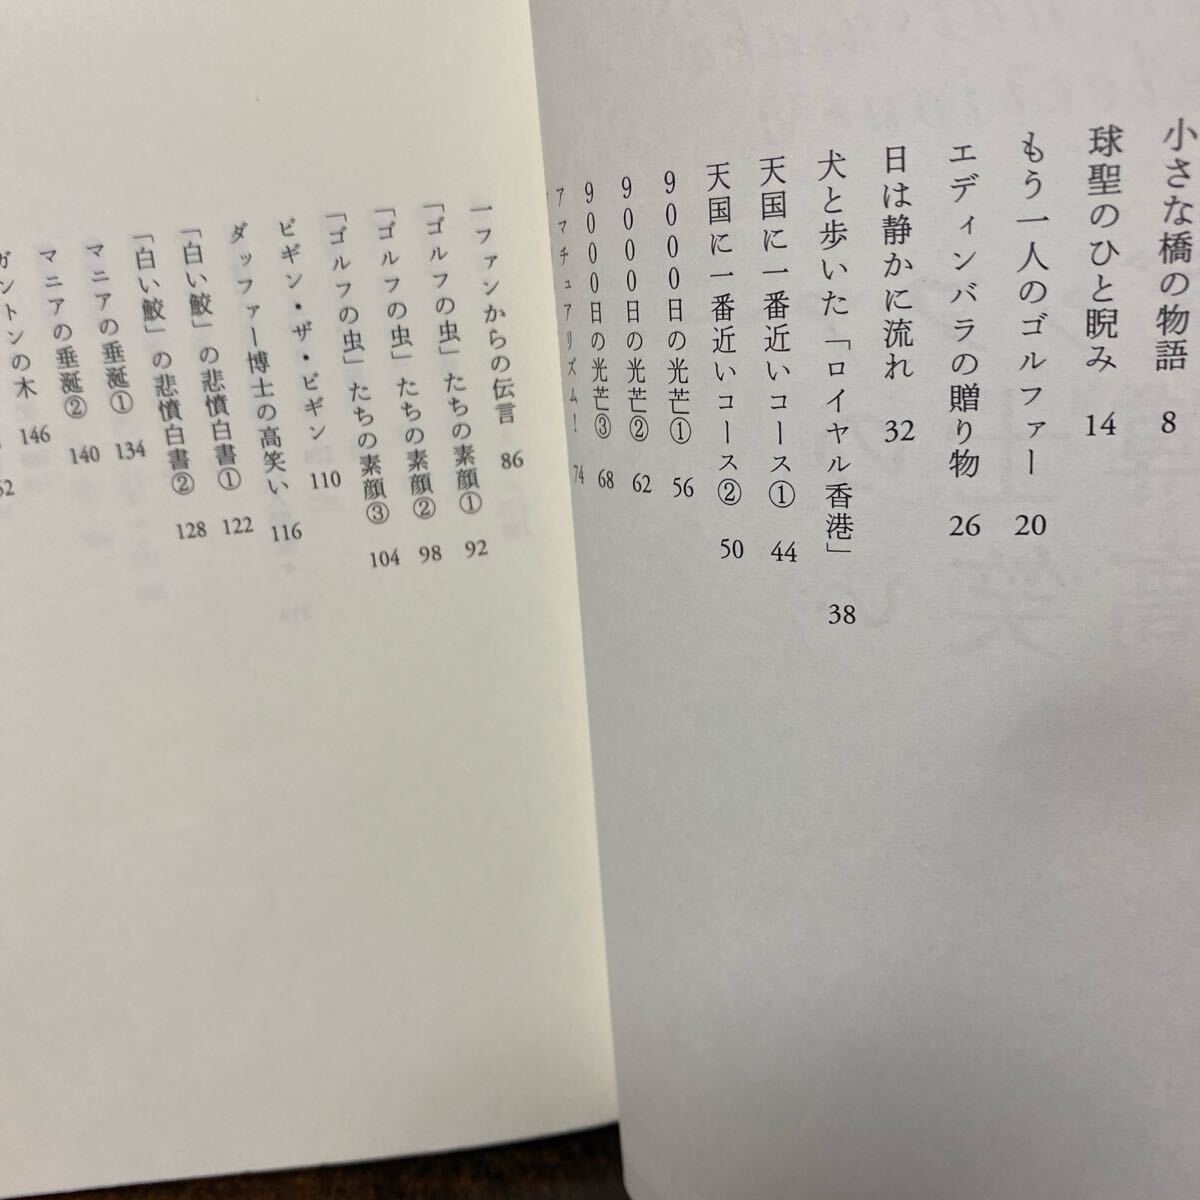 小さな橋の物語 8
球聖のひと睨み 14
もう一人のゴルファー 20
エディンバラの贈り物 26
日は静かに流れ 32
犬と歩いた「ロイヤル香港」 38
天国に一番近いコース① 44
天国に一番近いコース② 50
9000日の光芒① 56
9000日の光芒② 62
9000日の光芒③ 68
アマチュアリズム! 74
一ファンからの伝言 86
「ゴルフの虫」たちの素顔① 92
「ゴルフの虫」たちの素顔② 98
「ゴルフの虫」たちの素顔③ 104
ビギン・ザ・ビギン 110
ダッファー博士の高笑い 116
「白い鮫」の悲憤白書① 122
「白い鮫」の悲憤白書② 128
マニアの垂涎① 134
マニアの垂涎② 140
ガントンの木 146